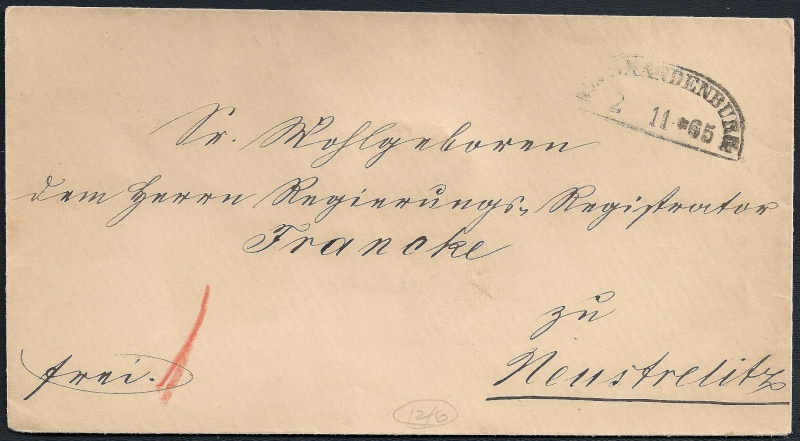 NEUBRANDENBURG
2 11 *65
Sr. Wohlgeboren
dem Herrn Regierungs-Registrator
Francke
zu
Neustrelitz
frei.
12/6